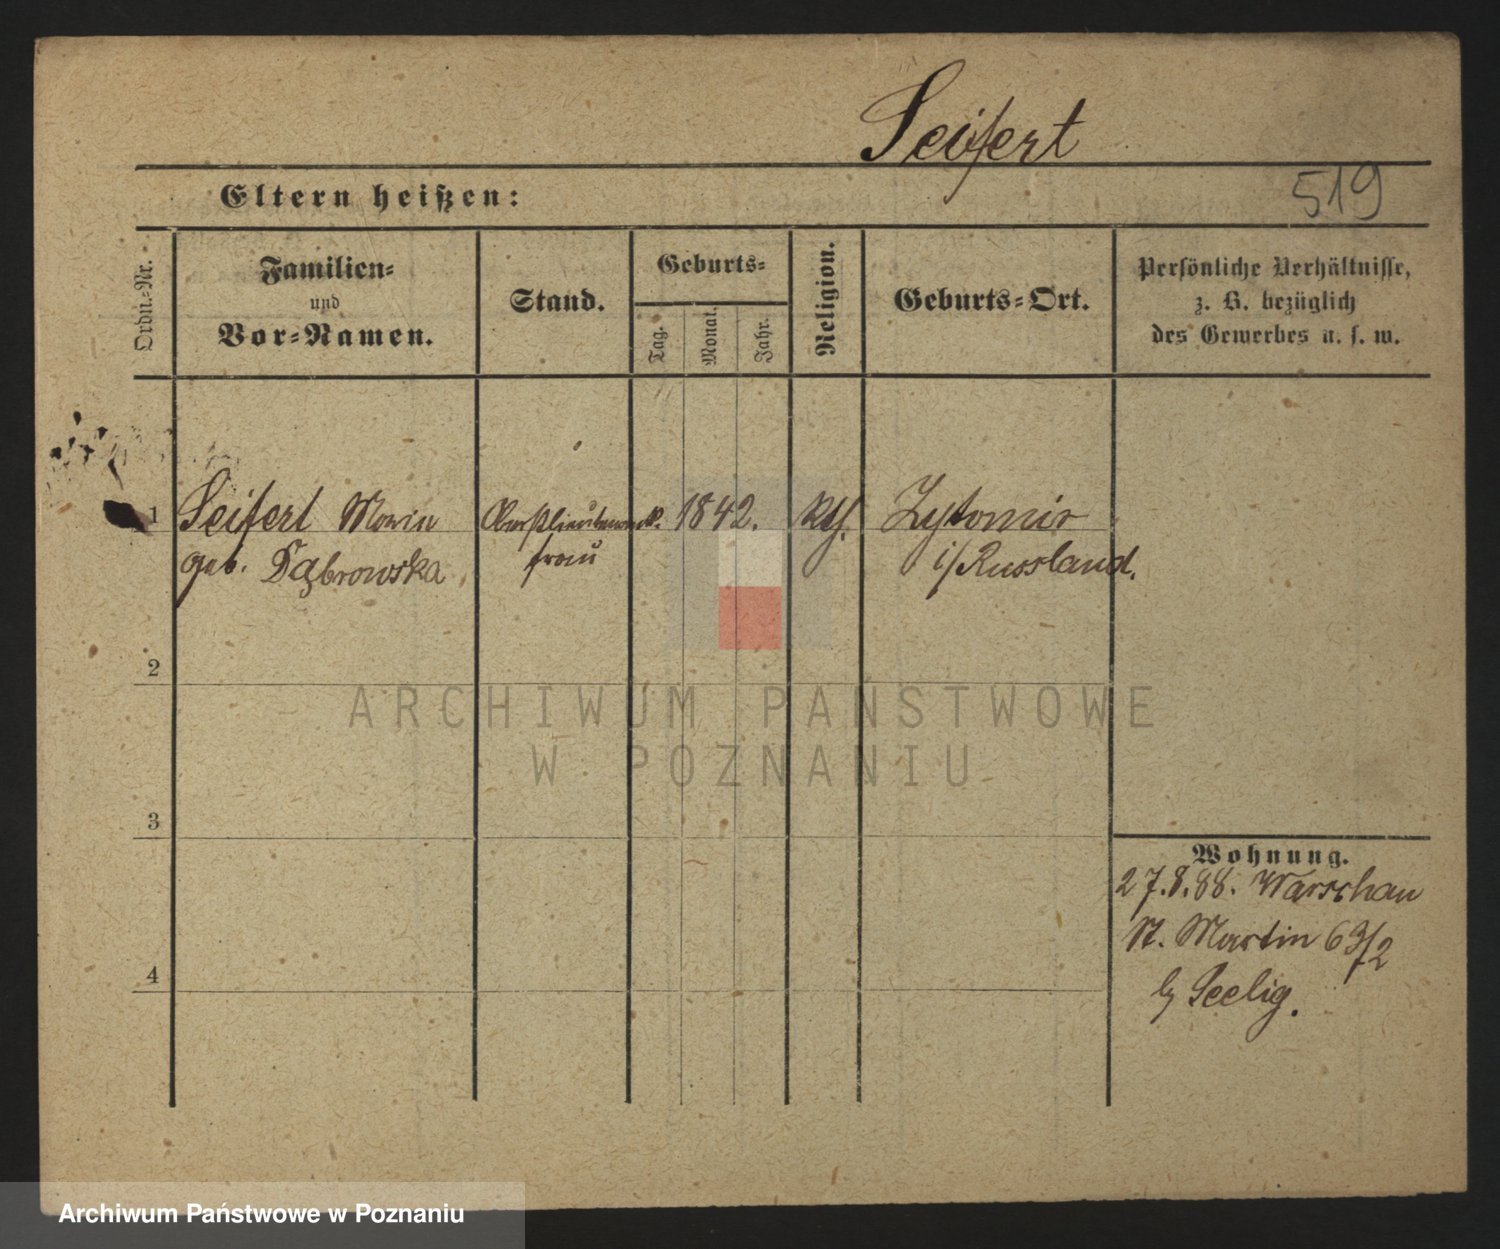 Seifert
Eltern heißen:
519
Ordn.-Nr.
Familien-
und
Vor-Namen.
Stand.
Geburts-
Tag.
Monat.
Jahr.
Religion.
Geburts-Ort.
Persönliche Verhältnisse,
z. B. bezüglich
des Gewerbes u. s. w.
1
Seifert Maria
geb. Dąbrowska
Oberstlieutenants
frau
1842.
kth.
Zytomir
i/Russland.
2
3
4
Wohnung.
27.8.88. Warschau
St. Martin 63/2
b/ Seelig.
ARCHIWUM PAŃSTWOWE
W POZNANIU
Archiwum Państwowe w Poznaniu